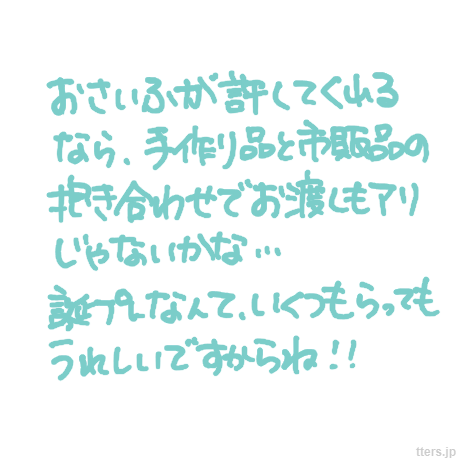 おさいふが許してくれる
なら、手作り品と市販品の
抱き合わせでお渡しもアリ
じゃないかな…
誕プレなんて、いくつもらっても
うれしいですからね!!
tters.jp